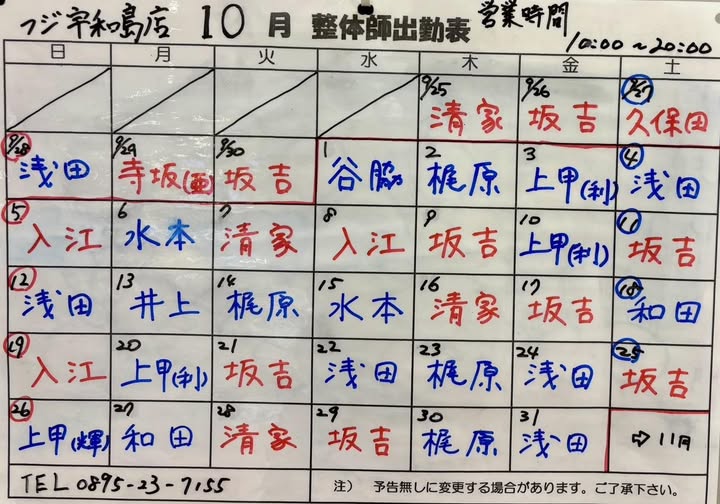 フジ宇和島店 10月 整体師出勤表 営業時間
10:00～20:00
日 月 火 水 木 金 土
9/25 9/26 9/27
清家 坂吉 久保田
9/28 9/29 9/30 1 2 3 4
浅田 寺坂(亜) 坂吉 谷脇 梶原 上甲(利) 浅田
5 6 7 8 9 10 11
入江 水本 清家 入江 坂吉 上甲(利) 坂吉
12 13 14 15 16 17 18
浅田 井上 梶原 水本 清家 坂吉 和田
19 20 21 22 23 24 25
入江 上甲(利) 坂吉 浅田 梶原 浅田 坂吉
26 27 28 29 30 31
上甲(輝) 和田 清家 坂吉 梶原 浅田 ⇨11月
TEL 0895-23-7155 注） 予告無しに変更する場合があります。ご了承下さい。